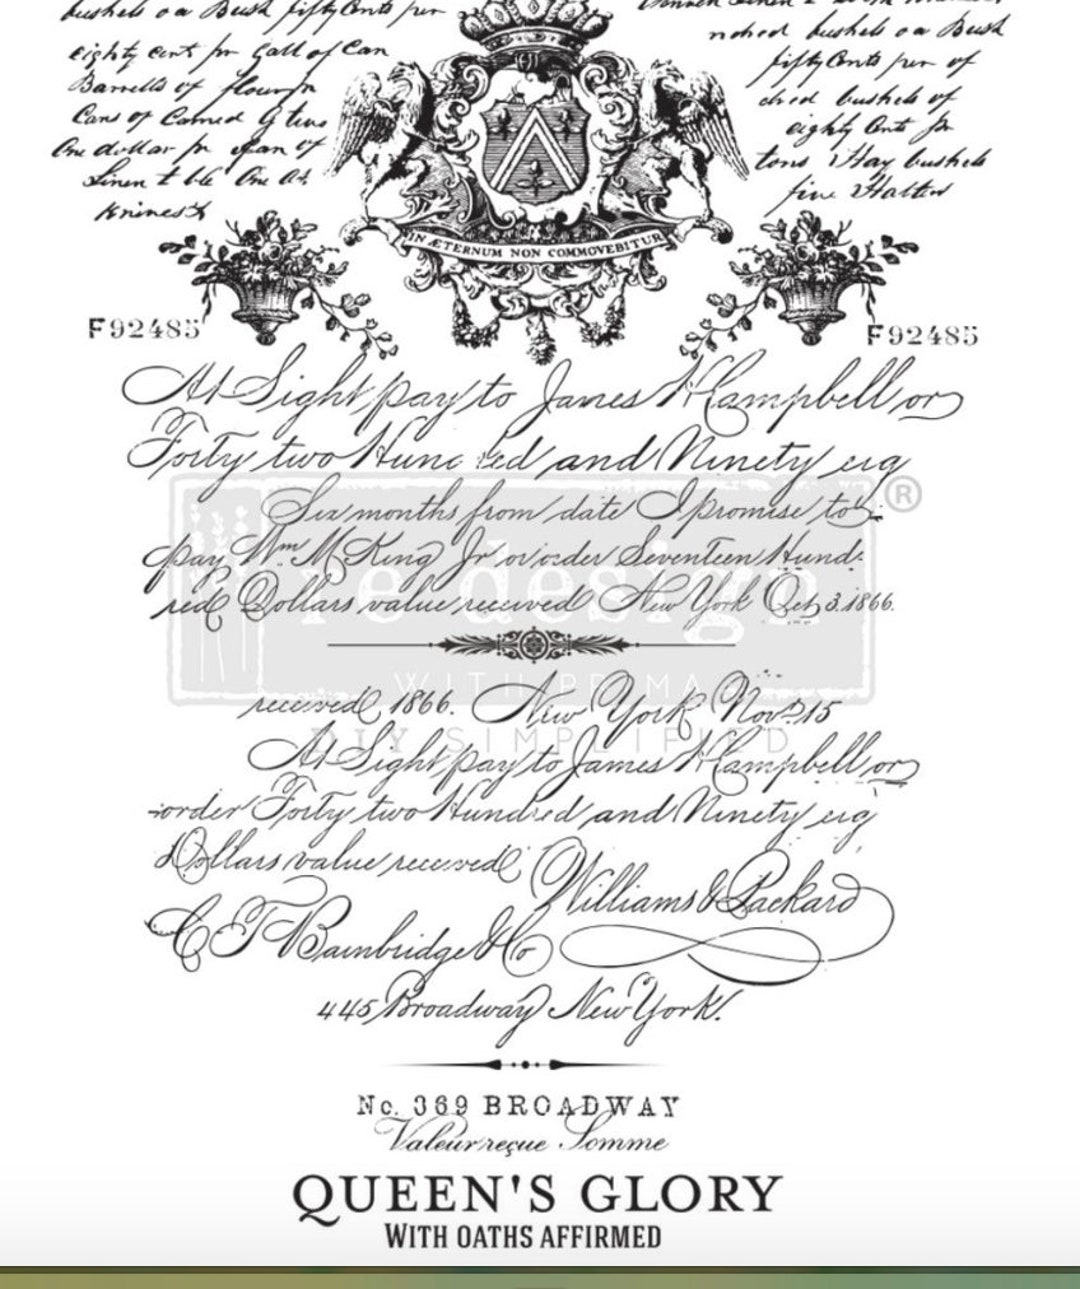 bushels oa Bush fifty Cents per
eighty cent pr Gall of Can
Barrells of flour
Cans of Corned
One dollar pr of
Linen One
nohed bushels oa Bush
fifty Cents per of
dred bushels of
eighty Cents
tons Hay bushels
five
IN ÆTERNUM NON COMMOVEBITUR
F92485
F92485
At Sight pay to James H Campbell or
Forty two Hund red and Ninety eig
Six months from date I promise to
pay Wm M King Jr or order Seventeen Hund
red Dollars value received New York Oct 3. 1866.
re·design
WITH PRIMA
®
DIY SIMPLIFIED
received 1866. New York Nov. 15
At Sight pay to James H Campbell or
order Forty two Hundred and Ninety eig
Dollars value received
Williams & Packard
C T Bainbridge & Co
445 Broadway New York.
No. 369 BROADWAY
Valeur reçue Somme
QUEEN'S GLORY
WITH OATHS AFFIRMED